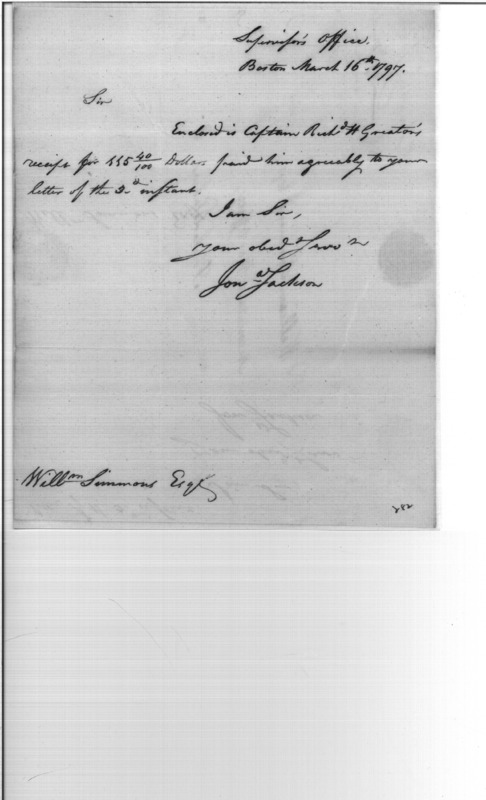 Supervisor's Office.
Boston March 16th 1797.
Sir
Enclosed is Captain Richd H Greaton's
receipt for 115 40/100 Dollars paid him agreeably to your
letter of the 2d instant.
I am Sir,
your obedt Servt
Jona Jackson
Willm Simmons Esqr